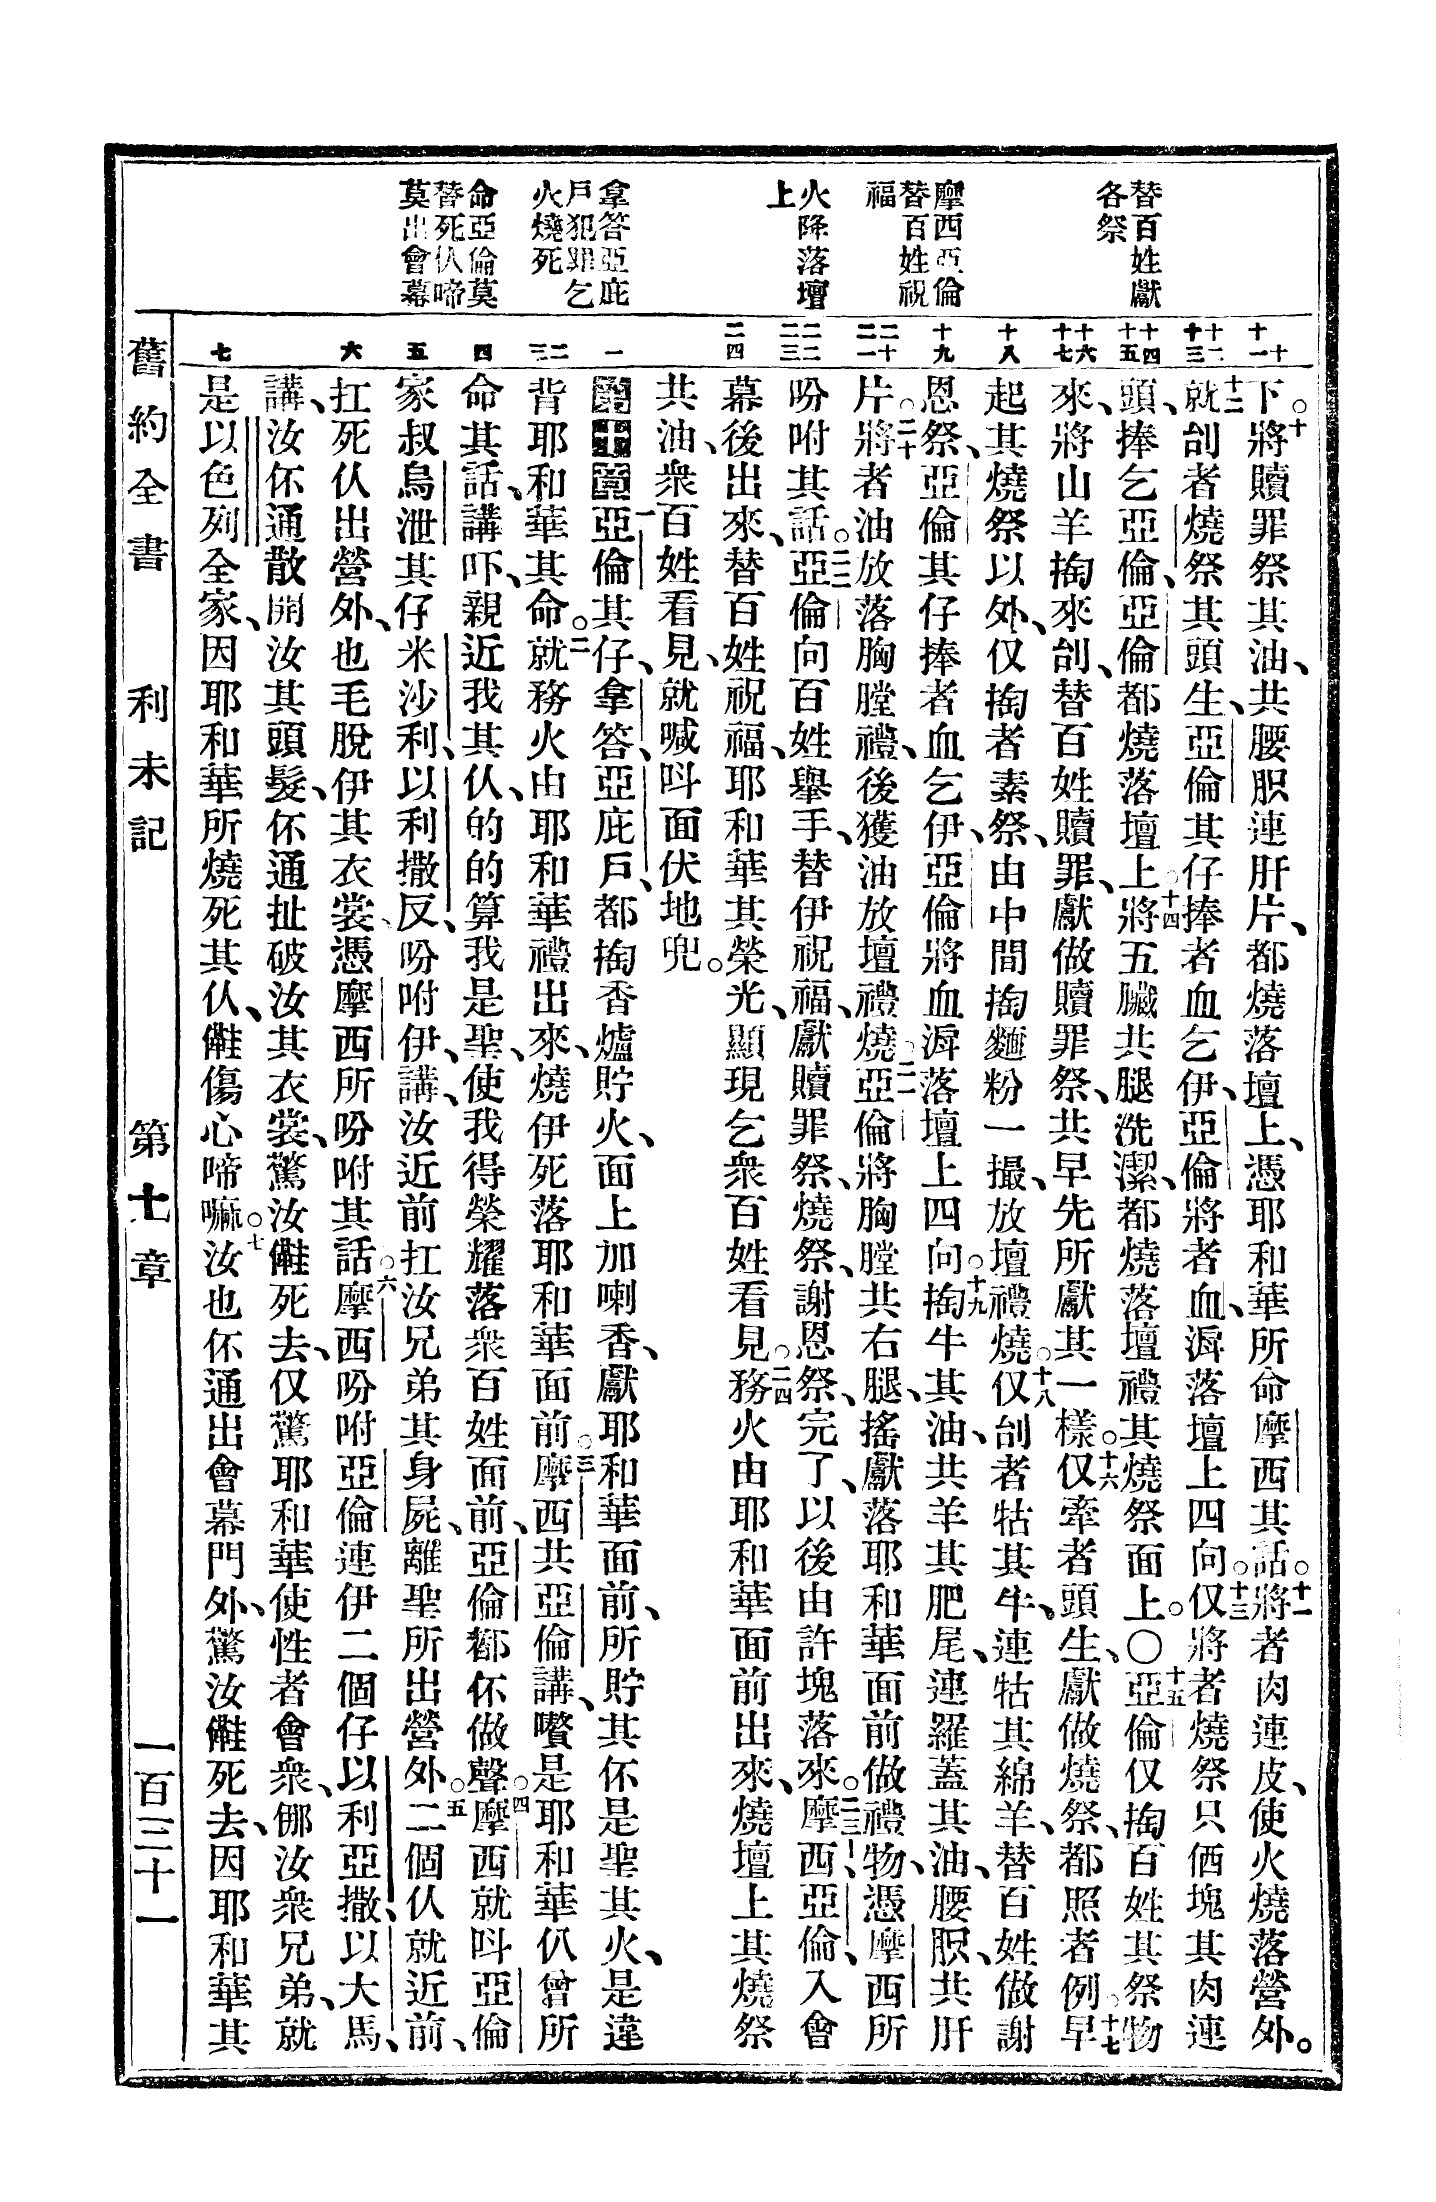 替百姓獻
各祭
摩西亞倫
替百姓祝
福
火降落壇
上
拿答亞庇
戶犯罪乞
火燒死
命亞倫莫
替死仈啼
莫出會幕
十 十一 十二 十三 十四 十五 十六 十七 十八 十九 二十 二一 二二 二三 二四 一 二 三 四 五 六 七
下。十將贖罪祭其油、共腰䏜連肝片、都燒落壇上、憑耶和華所命摩西其話。十一將者肉連皮、使火燒落營外。
十二就刣者燒祭其頭生、亞倫其仔捧者血乞伊、亞倫將者血、滒落壇上四向。十三仅將者燒祭只価塊其肉連
頭、捧乞亞倫、亞倫都燒落壇上。十四將五臟共腿洗潔、都燒落壇禮其燒祭面上。〇十五亞倫仅掏百姓其祭物
來、將山羊掏來刣、替百姓贖罪、獻做贖罪祭、共早先所獻其一樣。十六仅牽者頭生、獻做燒祭、都照者例。十七早
起其燒祭以外、仅掏者素祭、由中間掏麵粉一撮、放壇禮燒。十八仅刣者牯其牛、連牯其綿羊、替百姓做謝
恩祭、亞倫其仔捧者血乞伊、亞倫將血滒落壇上四向。十九掏牛其油、共羊其肥尾、連羅蓋其油、腰䏜、共肝
片。二十將者油放落胸膛禮、後獲油放壇禮燒。二一亞倫將胸膛共右腿、搖獻落耶和華面前做禮物、憑摩西所
吩咐其話。二二亞倫向百姓舉手、替伊祝福、獻贖罪祭、燒祭、謝恩祭、完了、以後由許塊落來。二三摩西、亞倫、入會
幕後出來、替百姓祝福、耶和華其榮光、顯現乞衆百姓看見。二四務火由耶和華面前出來、燒壇上其燒祭
共油、衆百姓看見、就喊呌面伏地兜。
第十章一亞倫其仔、拿答、亞庇戶、都掏香爐貯火、面上加喇香、獻耶和華面前、所貯其伓是聖其火、是違
背耶和華其命。二就務火由耶和華禮出來、燒伊死落耶和華面前。三摩西共亞倫講、嚽是耶和華仈曾所
命其話、講吓、親近我其仈、的的算我是聖、使我得榮耀落衆百姓面前、亞倫都伓做聲。四摩西就呌亞倫
家叔烏泄其仔米沙利、以利撒反、吩咐伊講、汝近前扛汝兄弟其身屍、離聖所出營外。五二個仈就近前、
扛死仈出營外、也毛脫伊其衣裳、憑摩西所吩咐其話。六摩西吩咐亞倫連伊二個仔以利亞撒、以大馬、
講、汝伓通散開汝其頭髮、伓通扯破汝其衣裳、驚汝㒕死去、仅驚耶和華使性者會衆、倻汝衆兄弟、就
是以色列全家、因耶和華所燒死其仈、㒕傷心啼嘛。七汝也伓通出會幕門外、驚汝㒕死去、因耶和華其
舊約全書 利未記 第十章 一百三十一